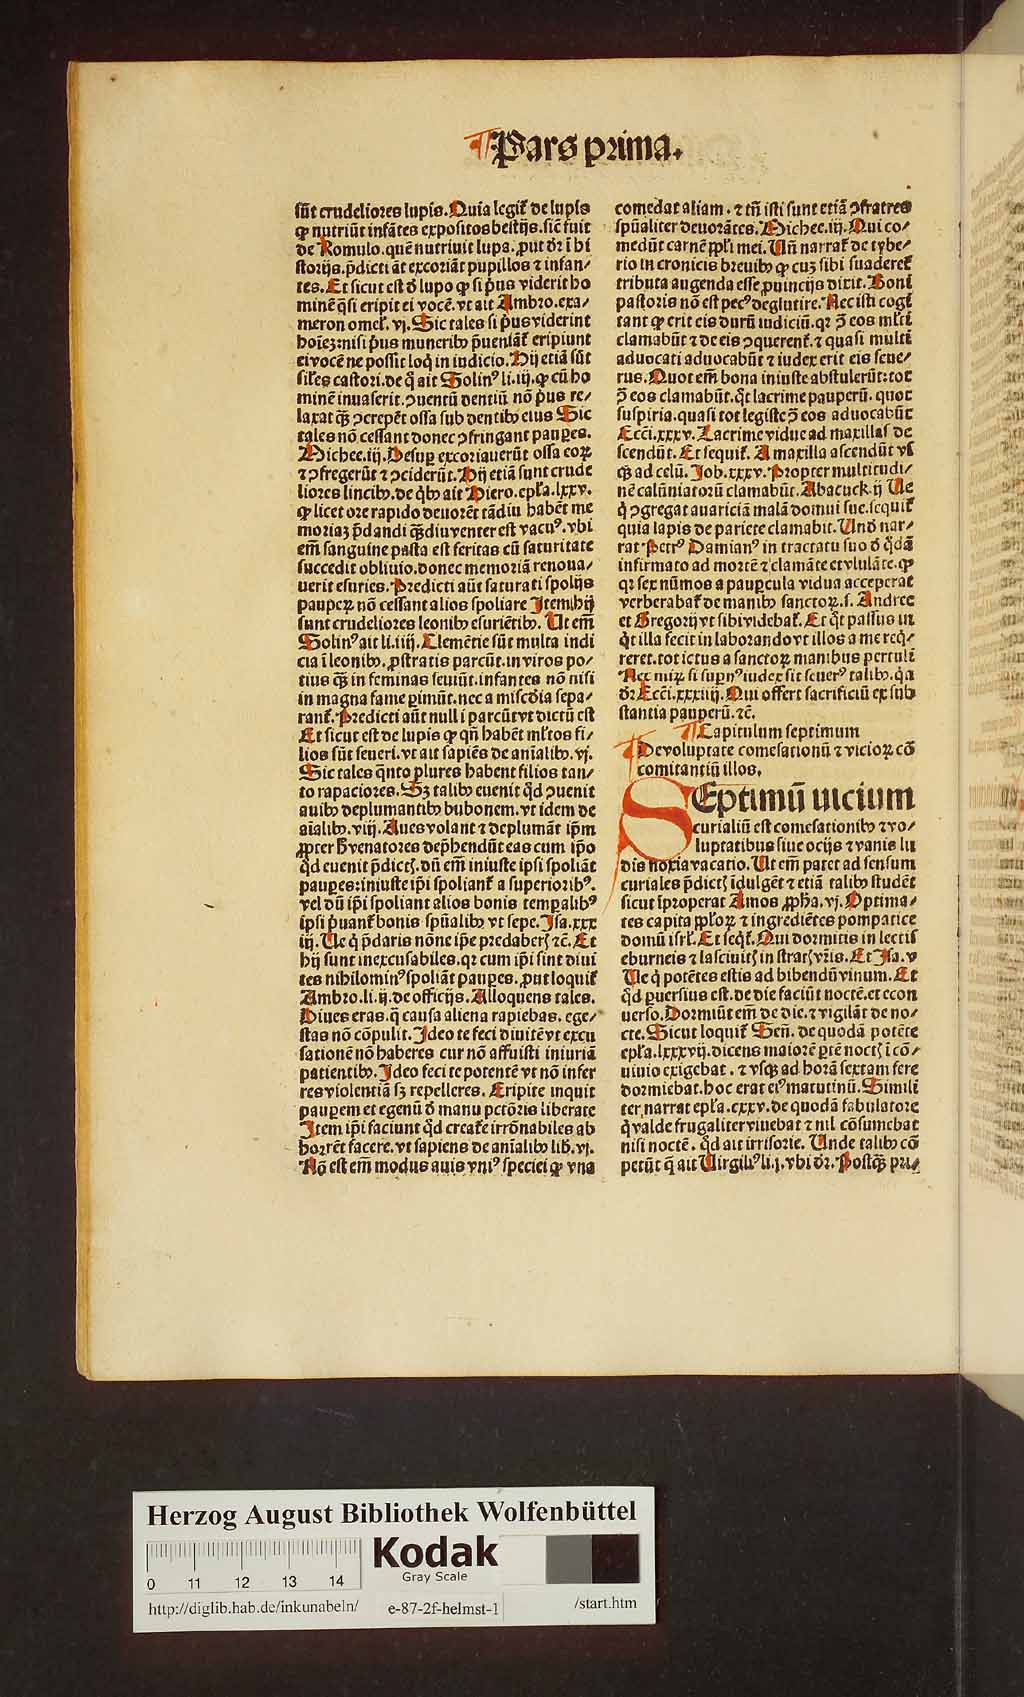 Pars prima.
sūt crudeliores lupis. Quia legit᷑ de lupis
ꝙ nutriūt infātes expositos bestijs. sic̄ fuit
de Romulo. quē nutriuit lupa. ꝓut dr̄ ī hi
storijs. p̄dicti āt excoriāt pupillos ⁊ infan/
tes. Et sicut est đ lupo ꝙ si pͥus viderit ho
minē q̄si eripit ei vocē. vt ait Ambro. exa/
meron omel᷑. vj. Sic tales si pͥus viderint
hoīeꝫ: nisi pͥus muneribꝰ p̄ueniāt᷑ eripiunt
ei vocē ne possit loq̄ in iudicio. Hij etiā sūt
sil᷑es castori. de q̄ ait Solinꝰ li. iij. ꝙ cū ho
minē inuaserit. ꝯuentū dentiū nō pͥus re/
laxat qͣꝫ ꝯcrepēt ossa sub dentibꝰ eius Sic
tales nō cessant donec ꝯfringant pauꝑes.
Michee. iij. Desuꝑ excoriauerūt ossa eoꝝ
⁊ ꝯfregerūt ⁊ ꝯciderūt. Hij etiā sunt crude
liores lincibꝰ. de q̄bꝰ ait Hiero. epl᷑a. lxxv.
ꝙ licet ore rapido deuorēt tādiu habēt me
moriaꝫ p̄dandi qͣꝫdiu venter est vacuꝰ. vbi
em̄ sanguine pasta est feritas cū saturitate
succedit obliuio. donec memoriā renoua/
uerit esuries. Predicti aūt saturati spolijs
pauꝑeꝝ nō cessant alios spoliare Item hij
sunt crudeliores leonibꝰ esuriētibꝰ. Ut em̄
Solinꝰ ait li. iiij. Clemētie sūt multa indi
cia ī leonibꝰ. ꝓstratis parcūt. in viros po/
tius qͣꝫ in feminas seuiūt. infantes nō nisi
in magna fame ꝑimūt. nec a mīa sepa/
rant᷑. Predicti aūt nulli parcūt vt dictū est
Et sicut est de lupis ꝙ qn̄ habēt ml᷑tos fi/
lios sūt seueri. vt ait sapiēs de aīalibꝰ. vj.
Sic tales q̄nto plures habent filios tan/
to rapaciores. Sꝫ talibꝰ euenit qd̄ ꝯuenit
auibꝰ deplumantibꝰ bubonem. vt idem de
aīalibꝰ. viij. Aues volant ⁊ deplumāt ip̄m
ꝓpter h̄ venatores dep̄hendūt eas cum ip̄o
qd̄ euenit p̄dictꝭ. dū em̄ iniuste ipsi spoliāt
pauꝑes: iniuste ip̄i spoliant᷑ a superioribꝰ.
vel dū ip̄i spoliant alios bonis temꝑalibꝰ
ipsi pͥuant᷑ bonis spūalibꝰ vt sepe. Isa. xxx
iij. Ue q̄ p̄daris nōne ip̄e predaberꝭ ⁊c̄. Et
hij sunt inexcusabiles. qꝛ cum ip̄i sint diui
tes nihilominꝰ spoliāt pauꝑes. ꝓut loquit᷑
Ambro. li. ij. de officijs. Alloquens tales.
Diues eras. q̄ causa aliena rapiebas. ege/
stas nō cōpulit. Ideo te feci diuitē vt excu
sationē nō haberes cur nō affuisti iniuriā
patientibꝰ. Ideo feci te potentē vt nō infer
res violentiā sꝫ repelleres. Eripite inquit
pauꝑem et egenū đ manu pctōris liberate
Item ip̄i faciunt qd̄ creat᷑e irrōnabiles ab
horrēt facere. vt sapiens de aīalibꝰ lib̄. vj.
Nō est em̄ modus auis vniꝰ speciei ꝙ vna
comedat aliam. ⁊ tn̄ isti sunt etiā ꝯfratres
spūaliter deuorātes. Michee. iij. Qui co/
medūt carnē ppl᷑i mei. Un̄ narrat᷑ de tybe/
rio in cronicis breuibꝰ ꝙ cuꝫ sibi suaderet᷑
tributa augenda esse ꝓuincijs dixit. Boni
pastoris nō est pecꝰ deglutire. Nec isti cogi
tant ꝙ erit eis durū iudiciū. qꝛ ꝯ̄ eos ml᷑ti
clamabūt ⁊ de eis ꝯquerent᷑. ⁊ quasi multi
aduocati aduocabūt ⁊ iudex erit eis seue/
rus. Quot em̄ bona iniuste abstulerūt: tot
ꝯ̄ eos clamabūt. qͦt lacrime pauperū. quot
suspiria. quasi tot legiste ꝯ̄ eos aduocabūt
Ecci. xxxv. Lacrime vidue ad maxillas de
scendūt. Et sequit᷑. A maxilla ascendūt vs
qͣꝫ ad celū. Job. xxxv. Propter multitudi/
nē calūniatorū clamabūt. Abacuck. ij Ue
q̄ ꝯgregat auariciā malā domui sue. sequit᷑
quia lapis de pariete clamabit. Unđ nar/
rat Petrꝰ Damianꝰ in tractatu suo đ qd̄ā
infirmato ad mortē ⁊ clamāte et vlulāte. ꝙ
qꝛ sex nūmos a pauꝑcula vidua acceperat
verberabat᷑ de manibꝰ sanctoꝝ. s. Andree
et Gregorij vt sibi videbat᷑. Et qͦt passus in
qͥt illa fecit in laborando vt illos a me req̄/
reret. tot ictus a sanctoꝝ manibus pertuli
Nec miꝝ si supernꝰ iudex sit seuerꝰ talibꝰ. qͣa
dr̄ Ecci. xxxiiij. Qui offert sacrificiū ex sub
stantia pauperū. ⁊c̄.
Capitulum septimum
De voluptate comesationū ⁊ vicioꝝ cō
comitantiū illos.
SEptimū uicium
curialiū est comesationibꝰ ⁊ vo/
luptatibus siue ocijs ⁊ vanis lu
dis noxia vacatio. Ut em̄ patet ad sensum
curiales p̄dictꝭ īdulgēt ⁊ etiā talibꝰ studēt
sicut īproperat Amos ꝓph̄a. vj. Optima/
tes capita ppl᷑oꝝ ⁊ ingrediētes pompatice
domū isrl᷑. Et seqt᷑. Qui dormitis in lectis
eburneis ⁊ lasciuitꝭ in stratꝭ vr̄is. Et Isa. v
Ue q̄ potētes estis ad bibendū vinum. Et
qd̄ ꝑuersius est. de die faciūt noctē. et econ
uerso. Dormiūt em̄ de die. ⁊ vigilāt de no/
cte. Sicut loquit᷑ Sen̄. de quodā potēte
epl᷑a. lxxxvij. dicens maiorē ꝑtē noctꝭ ī cō/
uiuio exigebat. ⁊ vsqꝫ ad horā sextam fere
dormiebat. hoc erat eiꝰ matutinū. Simili
ter narrat epl᷑a. cxxv. de quodā fabulatore
q̄ valde frugaliter viuebat ⁊ nil cōsumebat
nisi noctē. qd̄ ait irrisorie. Unde talibꝰ cō
petūt q̄ ait Uirgiliꝰ li. j. vbi dr̄. Postqͣꝫ pri/
Herzog August Bibliothek Wolfenbüttel
0 11 12 13 14
Kodak
Gray Scale
http://diglib.hab.de/inkunabeln/ e-87-2f-helmst-1 /start.htm